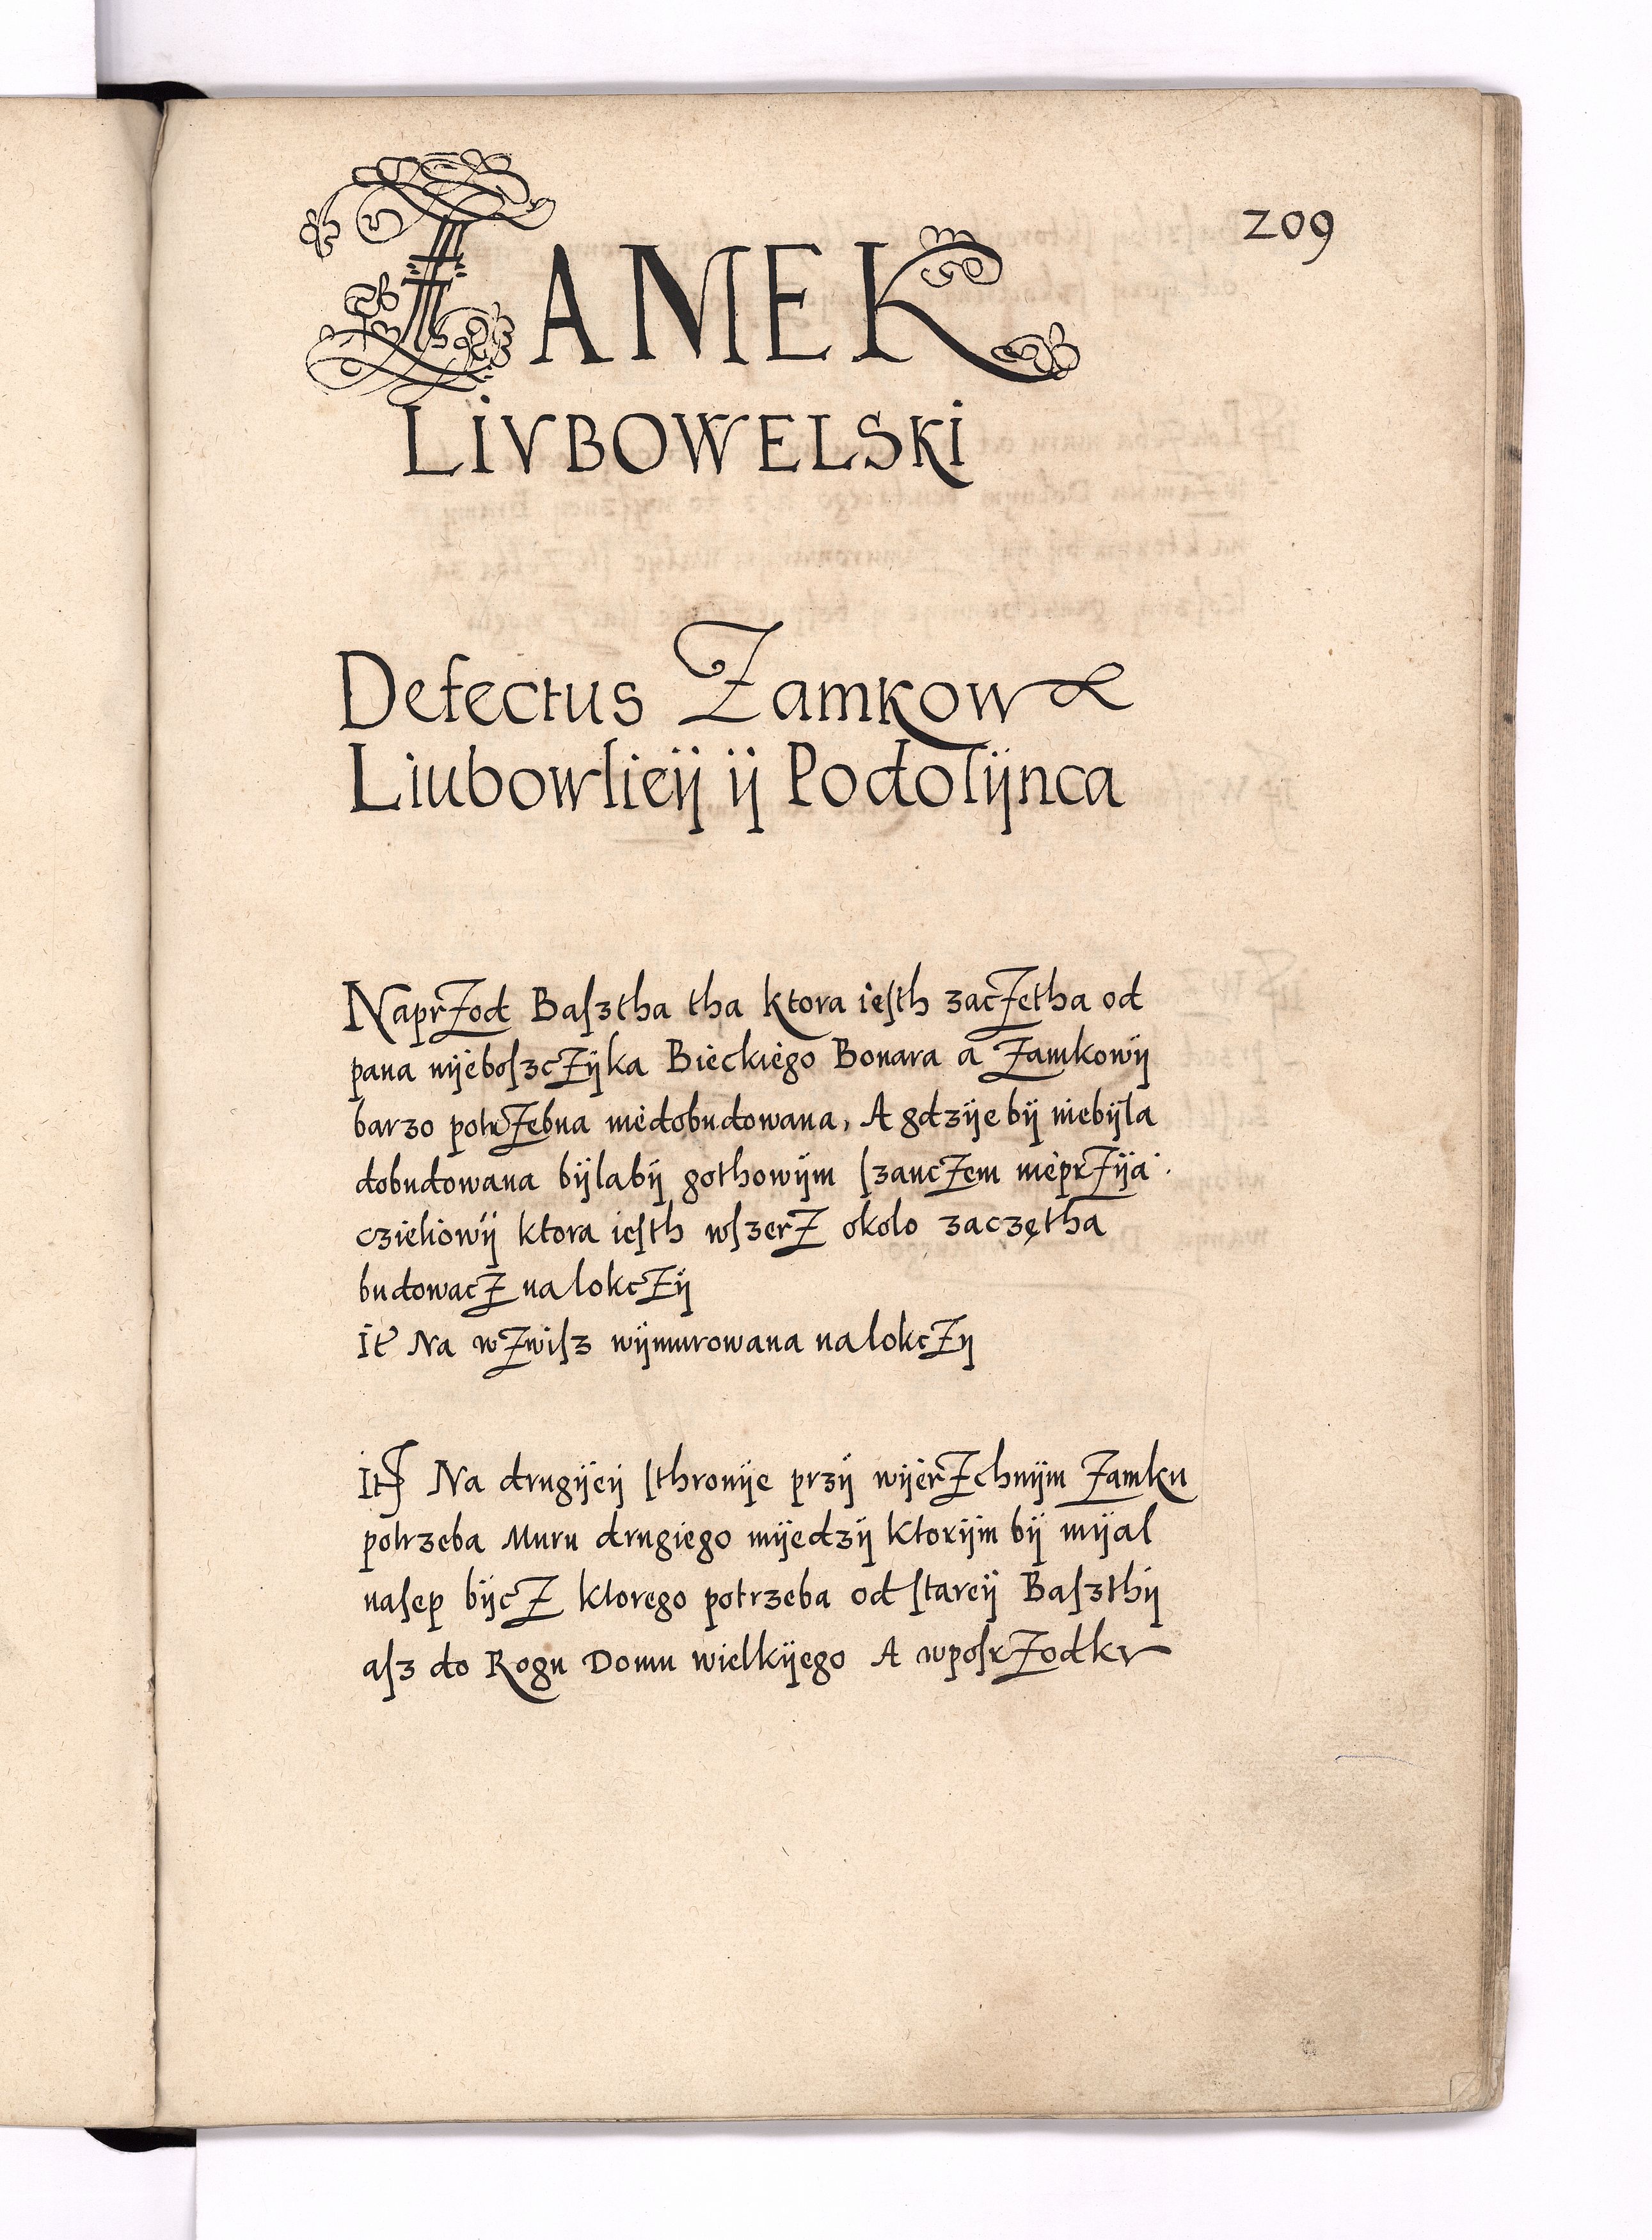 209
ZAMEK
LIVBOWELSKI
Defectus Zamkow
Liubowlieÿ ÿ Podolÿnca
NaprZod Baſztha tha ktora ieſth zacZetha od
pana nÿeboſzcZÿka Bieckiego Bonara a Zamkowÿ
barzo potrZebna niedobudowana, A gdzÿe bÿ niebÿla
dobudowana bÿlabÿ gothowÿm ſzancZem nieprZÿia
czieliowÿ ktora ieſth wſzerZ okolo zaczętha
budowacZ na lokcZÿ
It Na wZwiſz wÿmurowana na lokcZÿ
It Na drugÿeÿ ſthronÿe przÿ wÿerZchnÿm Zamku
potrzeba Muru drugiego mÿedzÿ ktorÿm bÿ mÿal
naſep bÿcZ ktorego potrzeba od ſtareÿ Baſzthÿ
aſz do Rogu Domu wielkÿego A wpoſrZodkv